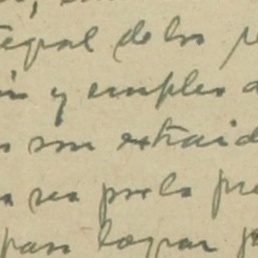 tegral de los
y empleo
son extraid
sea por la pro
para lograr